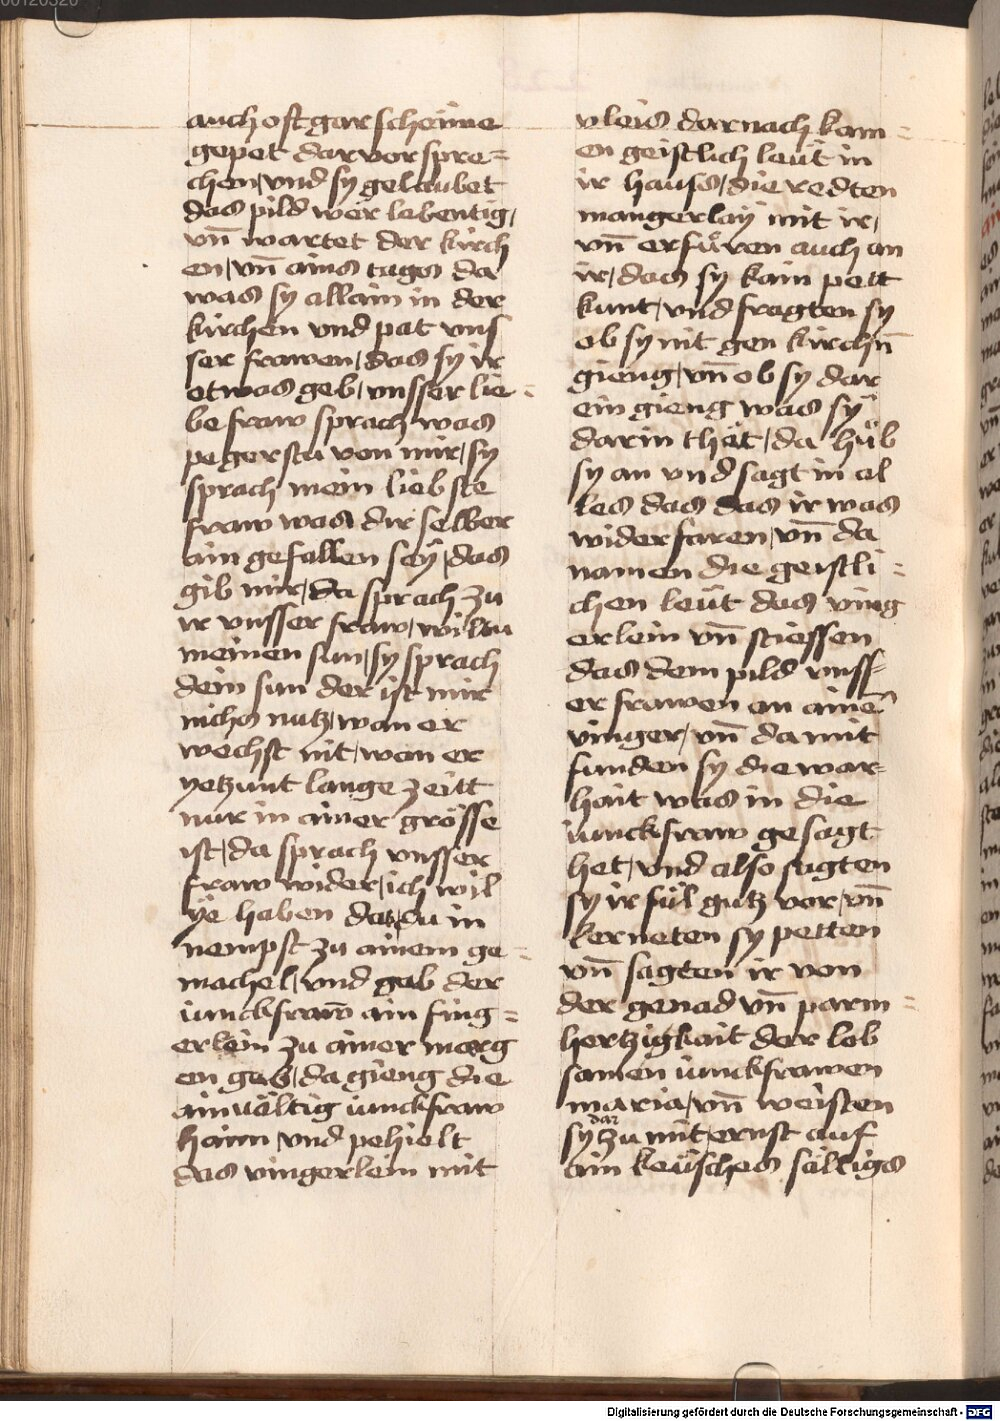 auch oft gar scheinne
gepet dar vor spre=
chen / vnd sy gelaubet
das pild wer lebentig /
vn̄ wartet der kirch
en / vn̄ ains tags da
was sy allain in der
kirchen vnd pat vns
ser frawen / das sy ir
etwas geb / vnsser lie=
be fraw sprach was
pegerstu von mir / sy
sprach mein liebste
fraw was dir selber
ain gefallen seÿ / das
gib mir / da sprach zu
ir vnsser fraw / wiltu
meinen sun / sy sprach
dein sun der ist mir
nichs nutz / wan er
wechst nit / wan er
yetzunt lange zeitt
nur in ainer grösse
ist / da sprach vnsser
fraw wider / ich wil
ÿe haben daz du in
nempst zu ainem ge=
machel / vnd gab der
iunckfraw̄ ain fing=
erlein zu ainer marg
en gab / da gieng die
ainuältig iunckfraw
haim / vnd pehielt
das vingerlein mit
vleis dar nach kam=
en geistlich leüt in
ir hauss / die redten
mangerlaÿ mit ir /
vn̄ erfüren auch an
ir / das sy kain pett
kunt / vnd fragten sy
ob sy nit gen kirchn̄
gieng / vn̄ ob sy dar
ein gieng was sÿ
darin thët / da hüb
sy an vnd sagt in al
les das das ir was
widerfaren / vn̄ da
namen die geistli=
chen leüt das ving
erlein vn̄ stiessen
das dem pild vnss=
er frawen an ainē
vinger / vn̄ da mit
funden sy die war=
hait was in die
iunckfraw gesagt
het / vnd also sagten
sy ir fül gutz vor / vn̄
lerneten sy petten
vn̄ sagten ir von
der genad vn̄ parm=
hertzigkait der lob
samen iunckfrawen
maria / vn̄ weisten
sy dar zu mit ernst auf
ain keüsches sälligs